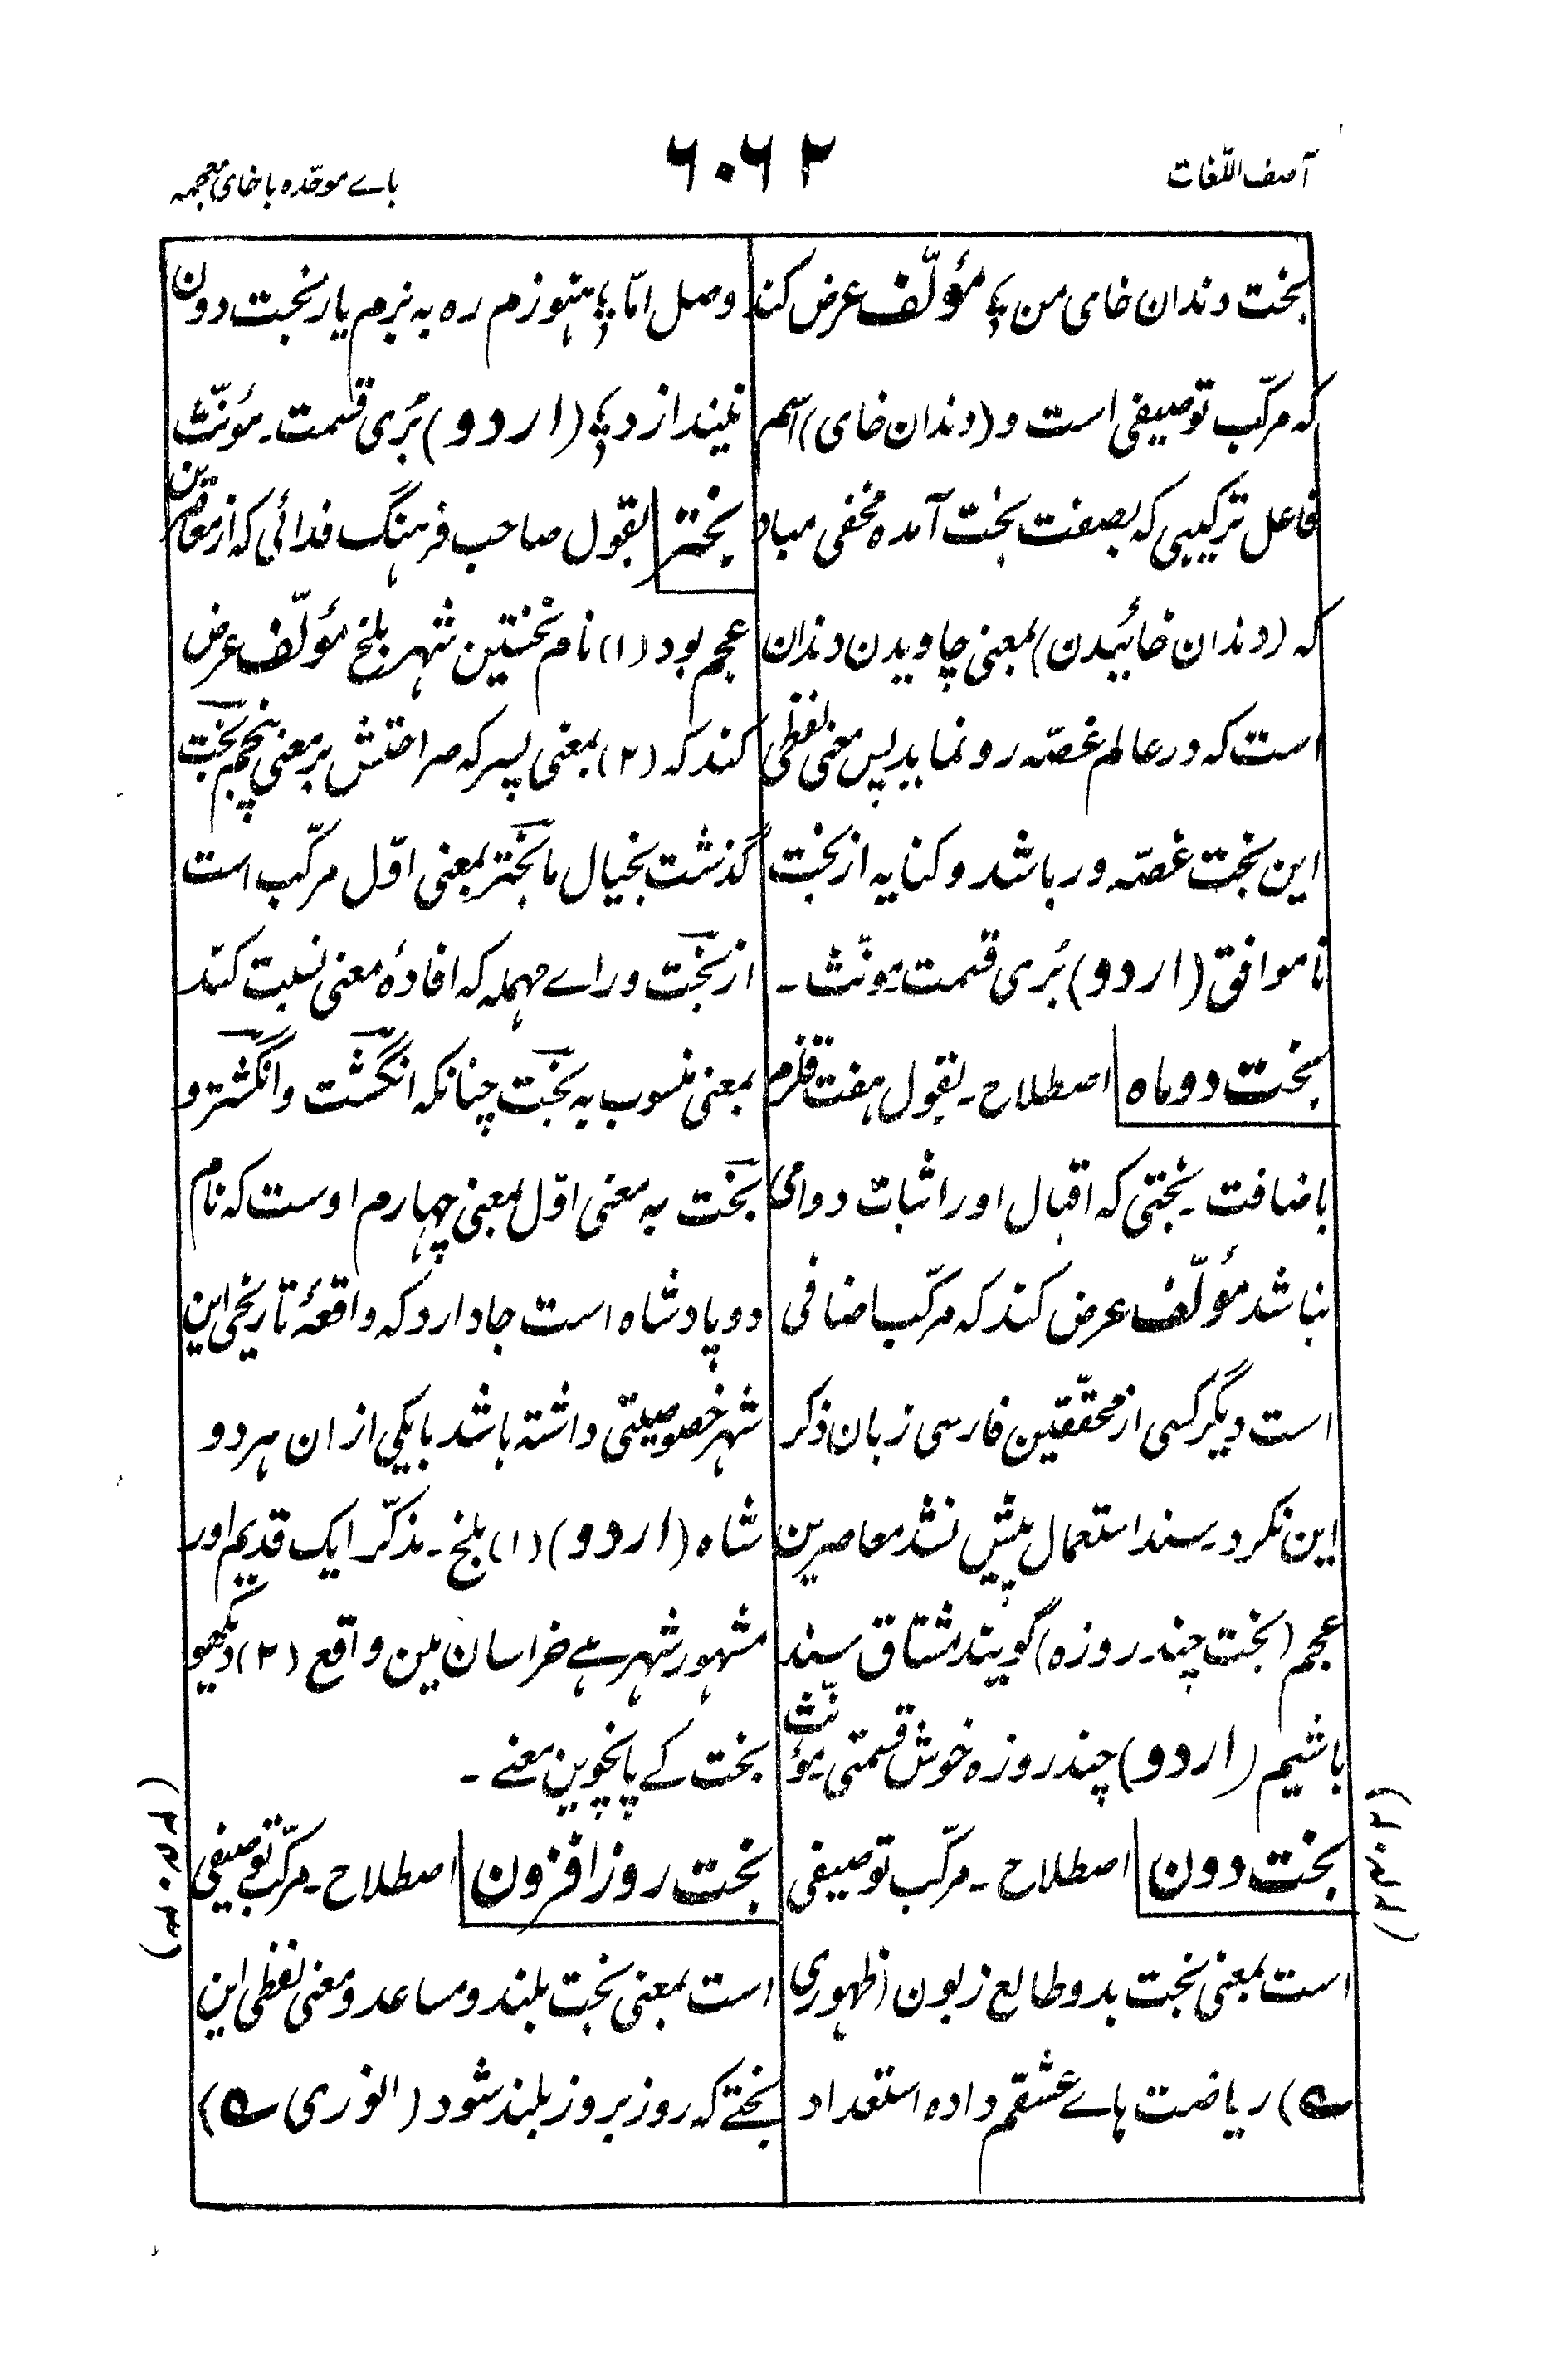 آصف اللغات
۶۰۶۲
بای موحّده با خای معجمه
بخت دندان خای من ؛؛ مؤلّف عرض کند
که مرکّب توصیفی است و (دندان خای) اسم
فاعل ترکیبی که بصفت بخت آمده مخفی مباد
که (دندان خائیدن) بمعنی چاویدن دندان
است که در عالم غصّه رو نماید پس معنی لفظی
این بخت غصّه ور باشد و کنایه از بخت
ناموافق (اردو) بُری قسمت۔ مؤنّث ۔
بخت دو ماه اصطلاح۔ بقول هفت قلزم
باضافت۔ بختی که اقبال او را ثبات دوامی
نباشد مؤلّف عرض کند که مرکّب اضافی
است دیگر کسی از محقّقین فارسی زبان ذکر
این نکرد۔ سند استعمال پیش نشد معاصرین
عجم (بخت چند روزه) گویند مشتاق سند
باشیم (اردو) چند روزہ خوش قسمتی۔ مؤنّث
بخت دون اصطلاح ۔ مرکّب توصیفی
است بمعنی بخت بد و طالع زبون (ظهوری
ے) ریاضت ہاے عشقم داده استعداد
وصل امّا ؛؛ هنوزم ره به بزم یار بخت دون
نیندازد ؛؛ (اردو) بُری قسمت۔ مؤنّث
بختر بقول صاحب فرہنگ فدائی که از معاصرین
عجم بود (۱) نام نخستین شهر بلخ مؤلّف عرض
کند که (۲) بمعنی پسر که صراحتش بر معنی پنجم بخت
گذشت بخیال ما بختر بمعنی اوّل مرکّب است
از بخت و راے مہملہ کہ افادۂ معنی نسبت کند
بمعنی منسوب به بخت چنانکه انگشت و انگشتر و
بخت به معنی اوّل بمعنی چهارم اوست که نام
دو پادشاه است جا دارد که واقعۂ تاریخی این
شهر خصوصیتی داشته باشد با یکی از ان هر دو
شاه (اردو) (۱) بلخ۔ مذکّر ایک قدیم اور
مشہور شہر ہے خراسان مین واقع (۲) دیکھو
بخت کے پانچوین معنے ۔
بخت روز افزون اصطلاح۔ مرکّب توصیفی
است بمعنی بخت بلند و مساعد و معنی لفظی این
بختے که روز بروز بلند شود (انوری ے)